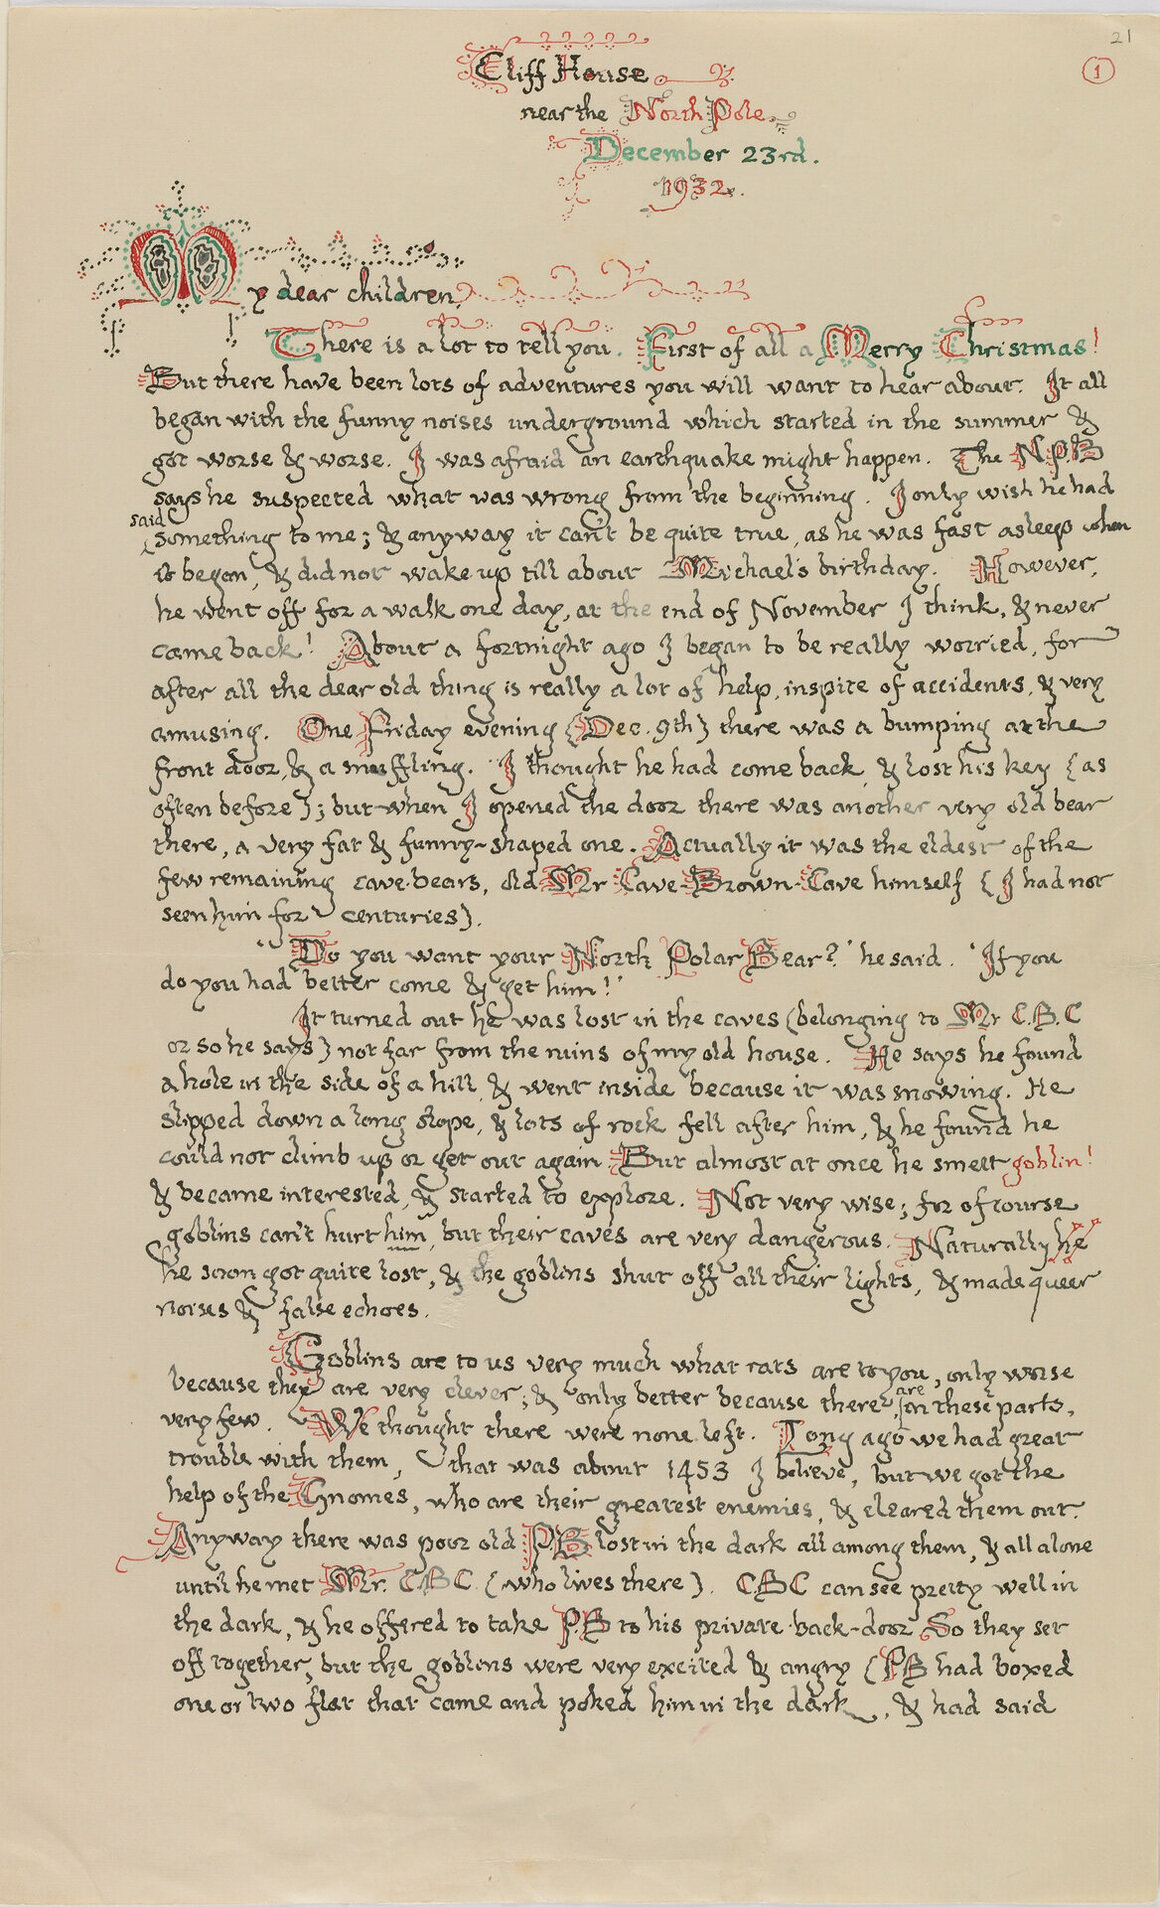 21
1
Cliff House
near the North Pole
December 23rd.
1932.
My dear children,
There is a lot to tell you. First of all a Merry Christmas!
But there have been lots of adventures you will want to hear about. It all
began with the funny noises underground which started in the summer &
got worse & worse. I was afraid an earthquake might happen. The N.P.B
says he suspected what was wrong from the beginning. I only wish he had
said
something to me; & anyway it can't be quite true, as he was fast asleep when
it began, & did not wake up till about Michael's birthday. However,
he went off for a walk one day, at the end of November I think, & never
came back! About a fortnight ago I began to be really worried, for
after all the dear old thing is really a lot of help, inspite of accidents, & very
amusing. One Friday evening (Dec. 9th) there was a bumping at the
front door, & a snuffling. I thought he had come back, & lost his key (as
often before); but when I opened the door there was another very old bear
there, a very fat & funny-shaped one. Actually it was the eldest of the
few remaining cave-bears, old Mr Cave-Brown-Cave himself (I had not
seen him for centuries).
"Do you want your North Polar Bear?" he said. "If you
do you had better come & get him!"
It turned out he was lost in the caves (belonging to Mr C.B.C
or so he says) not far from the ruins of my old house. He says he found
a hole in the side of a hill, & went inside because it was snowing. He
slipped down a long slope, & lots of rock fell after him, & he found he
could not climb up or get out again But almost at once he smelt goblin!
& became interested, & started to explore. Not very wise; for of course
goblins can't hurt him, but their caves are very dangerous. Naturally he
he soon got quite lost, & the goblins shut off all their lights, & made queer
noises & false echoes.
Goblins are to us very much what rats are to you, only worse
because they are very clever; & only better because there are in these parts,
very few. We thought there were none left. Long ago we had great
trouble with them, that was about 1453 I believe, but we got the
help of the Gnomes, who are their greatest enemies, & cleared them out.
Anyway there was poor old PB lost in the dark all among them, & all alone
until he met Mr. CBC (who lives there). CBC can see pretty well in
the dark, & he offered to take P.B to his private back-door So they set
off together, but the goblins were very excited & angry (PB had boxed
one or two flat that came and poked him in the dark, & had said